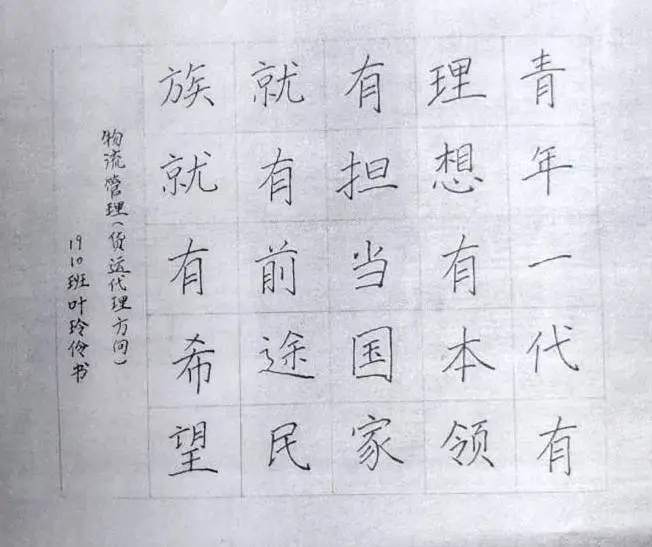 青年一代有
理想有本领
有担当国家
就有前途民
族就有希望
物流管理(货运代理方向)
1910班叶玲伶书